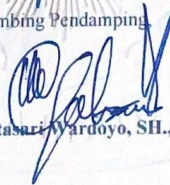 mbing Pendamping
tasari Wardoyo, SH.,